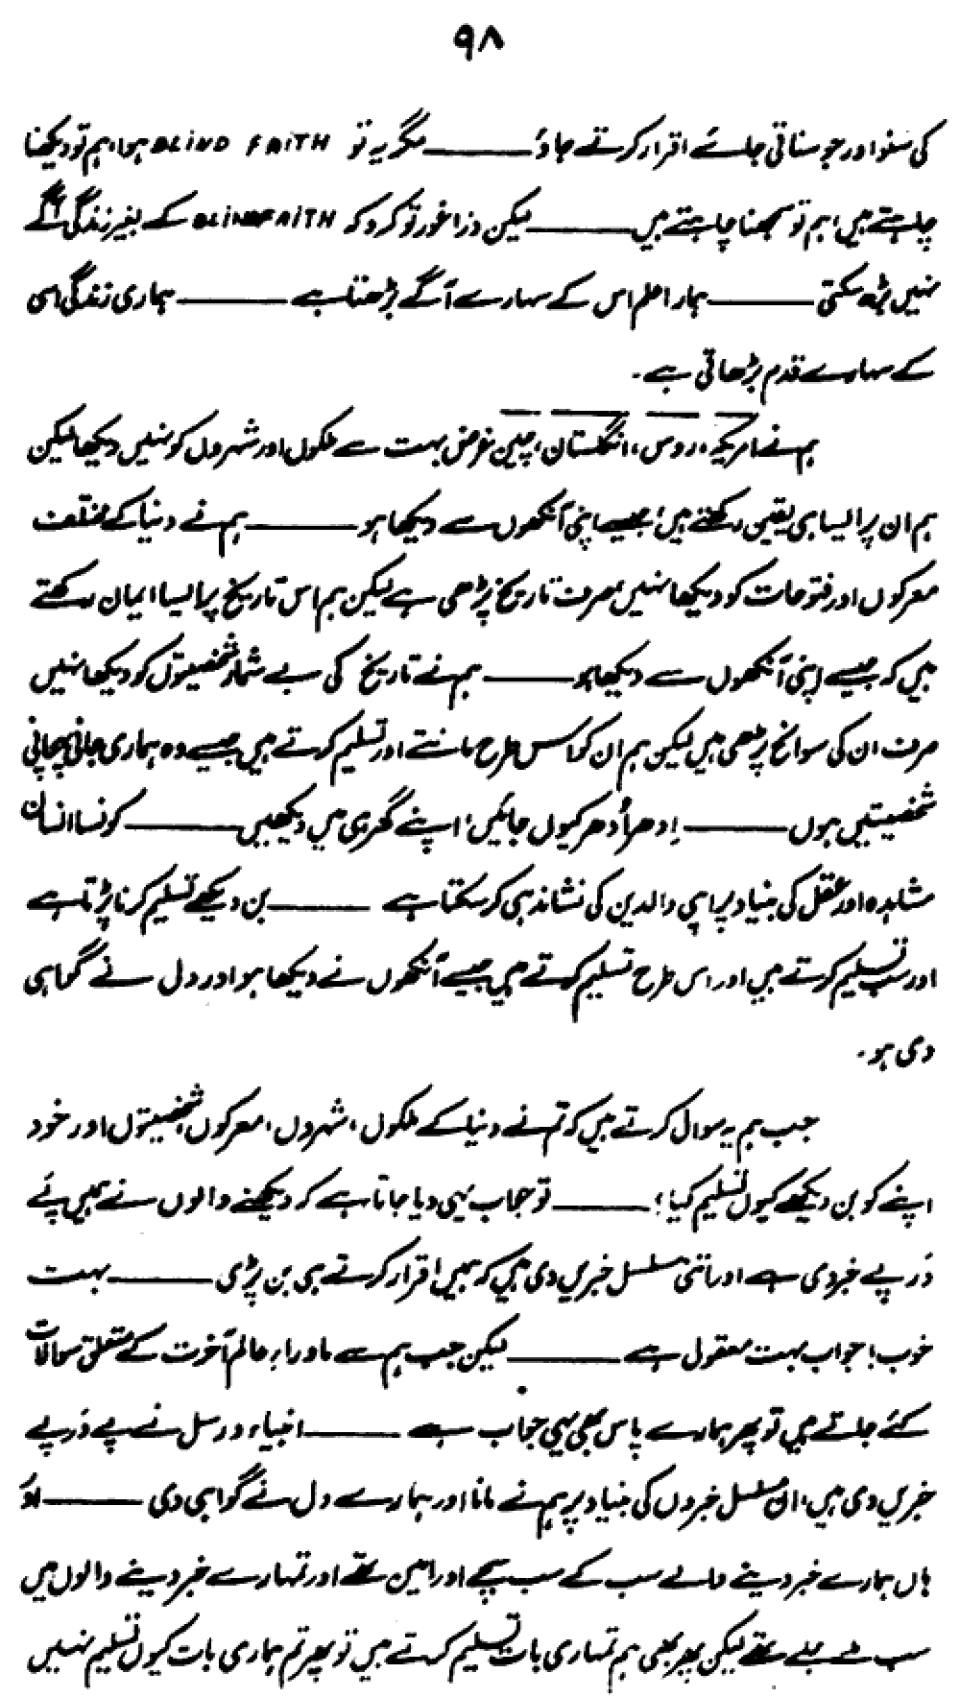 ۹۸
کی سنو اور جو سناتی جائے اقرار کرتے جاؤ ——— مگر یہ تو BLIND FAITH ہوا، ہم تو دیکھنا
چاہتے ہیں، ہم تو سمجھنا چاہتے ہیں ——— لیکن ذرا غور تو کرو کہ BLIND FAITH کے بغیر زندگی آگے
نہیں بڑھ سکتی ——— ہمارا علم اس کے سہارے آگے بڑھتا ہے ——— ہماری زندگی اسی
کے سہارے قدم بڑھاتی ہے۔
ہم نے امریکہ، روس، انگلستان، چین غرض بہت سے ملکوں اور شہروں کو نہیں دیکھا لیکن
ہم ان پر ایسا ہی یقین رکھتے ہیں؛ جیسے اپنی آنکھوں سے دیکھا ہو ——— ہم نے دنیا کے مختلف
معرکوں اور فتوحات کو دیکھا نہیں صرف تاریخ پڑھی ہے لیکن ہم اس تاریخ پر ایسا ایمان رکھتے
ہیں کہ جیسے اپنی آنکھوں سے دیکھا ہو ——— ہم نے تاریخ کی بے شمار شخصیتوں کو دیکھا نہیں
صرف ان کی سوانح پڑھی ہیں لیکن ہم ان کو اس طرح مانتے اور تسلیم کرتے ہیں جیسے وہ ہماری جانی پہچانی
شخصیتیں ہوں ——— اِدھر اُدھر کیوں جائیں؛ اپنے گھر ہی میں دیکھیں ——— کونسا انسان
مشاہدہ اور عقل کی بنیاد پر اپنی والدین کی نشاندہی کر سکتا ہے ——— بن دیکھے تسلیم کرنا پڑتا ہے
اور سب تسلیم کرتے ہیں اور اس طرح تسلیم کرتے ہیں جیسے آنکھوں نے دیکھا ہو اور دل نے گواہی
دی ہو۔
جب ہم یہ سوال کرتے ہیں کہ تم نے دنیا کے ملکوں، شہروں، معرکوں، شخصیتوں اور خود
اپنے کو بن دیکھے کیوں تسلیم کیا؟ ——— تو جواب یہی دیا جاتا ہے کہ دیکھنے والوں نے ہمیں پئے
دَر پے خبر دی ہے اور اتنی مسلسل خبریں دی ہیں کہ ہمیں اقرار کرتے ہی بن پڑی ——— بہت
خوب! جواب بہت معقول ہے ——— لیکن جب ہم سے ماوراء عالمِ آخرت کے متعلق سوالات
کئے جاتے ہیں تو پھر ہمارے پاس بھی یہی جواب ہے ——— انبیاء و رسل نے پے دَر پے
خبریں دی ہیں، ان مسلسل خبروں کی بنیاد پر ہم نے مانا اور ہمارے دل نے گواہی دی ——— اور
ہاں ہمارے خبر دینے والے سب کے سب سچے اور امین تھے اور تمہارے خبر دینے والوں میں
سب ملے جلے تھے لیکن پھر بھی ہم تمہاری بات تسلیم کرتے ہیں تو پھر تم ہماری بات کیوں تسلیم نہیں